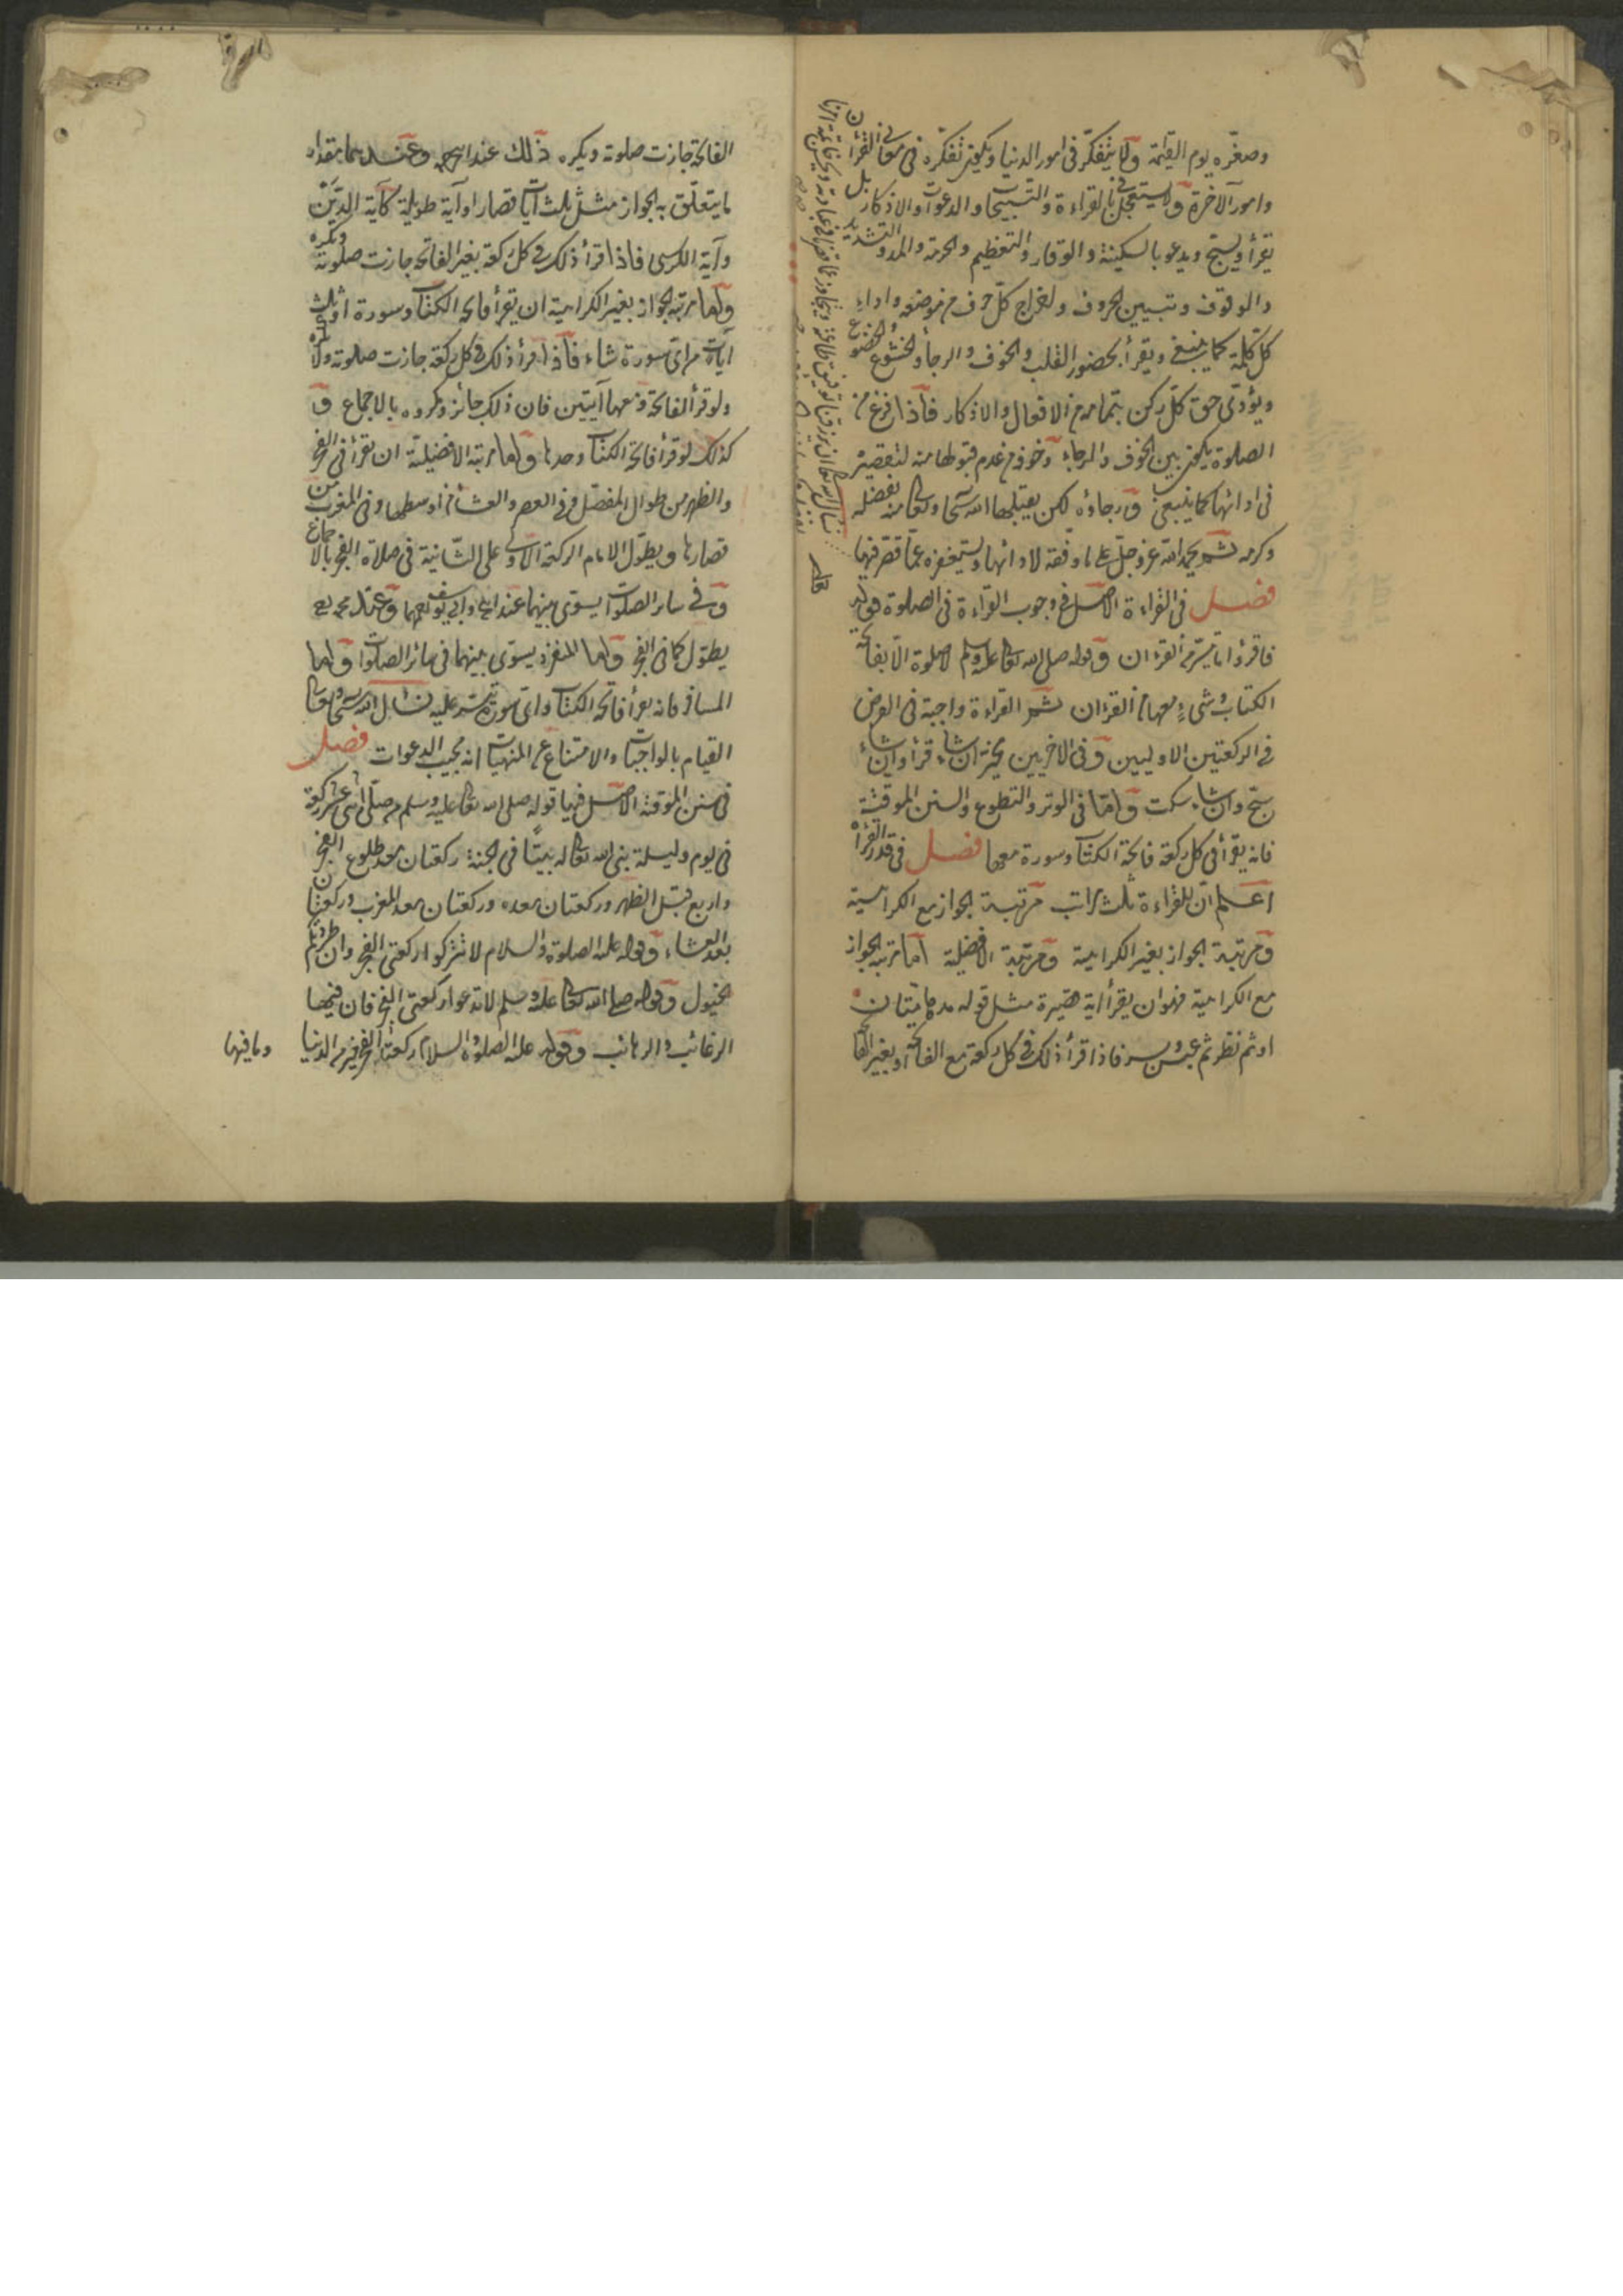 وصغّره يوم القيمة ولا يتفكّر في امور الدنيا ويكون تفكّره في معاني القرأن
وامور الآخرة ولا يستعجل في القراءة والتسبيحات والدعوات والاذكار بل
يقرأ ويسبّح ويدعو بالسكينة والوقار والتعظيم والحرمة والمد والتشديد
والوقوف وتبيين الحروف واخراج كلّ حرف من موضعه واداء
كل كلمة كما ينبغي ويقرأ بحضور القلب والخوف والرجأ والخشوع والخضوع
ويؤدّى حق كلّ ركن بتمامه من الافعال والاذكار فاذا فرغ من
الصلوة يكون بين الخوف والرجاء وخوفه من عدم قبولها منه لتقصيره
في ادائها كما ينبغي ورجاؤه لكن يقبلها الله سبحانه وتعالى منه بفضله
وكرمه ثم يحمد الله عز وجلّ على ما وفقه لادائها ويستغفره عمّا قصّر فيها
فصل في القراءة الاصل في وجوب القراءة في الصلوة قوله تعالى
فاقرؤا ما تيسّر من القرءان وقوله صلى الله تعالى عليه وسلم لا صلوة الّا بفاتحة
الكتاب وشيءٍ معها من القرءان ثم القراءة واجبة في الفرض
في الركعتين الاوليين وفي الاخريين مخيّر ان شاء قرأ وان شاء
سبّح وان شاء سكت وامّا في الوتر والتطوع والسنن الموقتة
فانه يقرأ في كل ركعة فاتحة الكتاب وسورة معها فصل في قدر القرأة
اعلم انّ للقراءة ثلث مراتب مرتبة الجواز مع الكراهية
ومرتبة الجواز بغير الكراهية ومرتبة الافضيلة امّا مرتبة الجواز
مع الكراهية فهو ان يقرأ اية قصيرة مثل قوله مدهامّتان
او ثم نظر ثم عبس وبسر فاذا قرأ ذلك في كل ركعة مع الفاتحة او بغير الفا
الفاتحة جازت صلوته ويكره ذلك عند ابيحـ وعندهما مقدار
ما يتعلّق به الجواز مثل ثلث آيات قصار او آية طويلة كآية الدّين
وآية الكرسي فاذا قرأ ذلك في كل ركعة بغير الفاتحة جازت صلوته ويكره
واما مرتبة الجواز بغير الكراهية ان يقرأ فاتحة الكتاب وسورة او ثلث
آيات من اىّ سورة شاء فاذا قرأ ذلك في كل ركعة جازت صلوته ولا يكره
ولو قرأ الفاتحة ومعها آيتين فان ذلك جائز ومكروه بالاجماع و
كذلك لو قرأ فاتحة الكتاب وحدها واما مرتبة الافضيلة ان يقرأ في الفجر
والظهر من طوال المفصّل وفي العصر والعشأ من اوسطها وفي المغرب من
قصارها ويطوّل الامام الركعة الاولى على الثّانية في صلاة الفجر بالاجماع
وفي سائر الصلوات يسوّى بينهما عند ابيح وابي يوسف رحمهما وعند محمد رح
يطوّل كما في الفجر واما المنفرد يسوّى بينهما في سائر الصلوات واما
المسافر فانه يقرأ فاتحة الكتاب واىّ سورة تيسّر عليه نسأل الله سبحانه وتعالى
القيام بالواجبات والامتناع عن المنهيات انه مجيب الدعوات فصل
في سنن الموقتة الاصل فيها قوله صلى الله تعالى عليه وسلم من صلّى اثنى عشر ركعة
في يوم وليلة بنى الله تعالى له بيتًا في الجنة ركعتان بعد طلوع الفجر
واربع قبل الظهر وركعتان بعده وركعتان بعد المغرب وركعتان
بعد العشاء وقوله عليه الصلوة والسلام لا تتركوا ركعتى الفجر وان طردتكم
الخيول وقوله صلى الله تعالى عليه وسلم لا تدعوا ركعتى الفجر فان فيهما
الرغائب والرهائب وقوله عليه الصلوة والسلام ركعتا الفجر خير من الدنيا
وما فيها